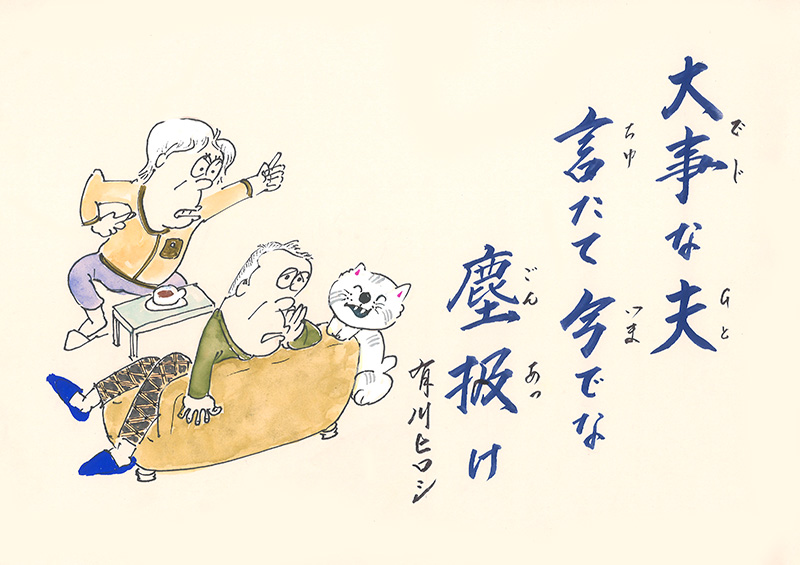 大事な夫
でじ
言たて今でな
ちゆ
いま
塵扱け
ごん
あつ
有川ヒロシ